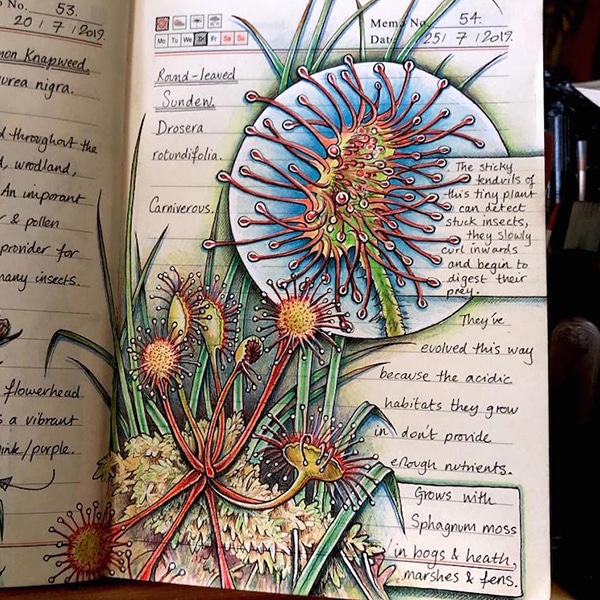 No. 53.
20 / 7 / 2019.
mon Knapweed.
urea nigra.
d throughout the
d, wrodland,
An imporant
r & pollen
provider for
many insects.
flowerhead
s a vibrant
ink/purple.
Memo No. 54.
Mo Tu We Th Fr Sa Su
Date 25 / 7 / 2019.
Round-leaved
Sundew.
Drosera
rotundifolia.
Carniverous.
The sticky
tendrils of
this tiny plant
can detect
stuck insects,
they slowly
curl inwards
and begin to
digest their
prey.
They've
evolved this way
because the acidic
habitats they grow
in don't provide
enough nutrients.
Grows with
Sphagnum moss
in bogs & heath,
marshes & fens.